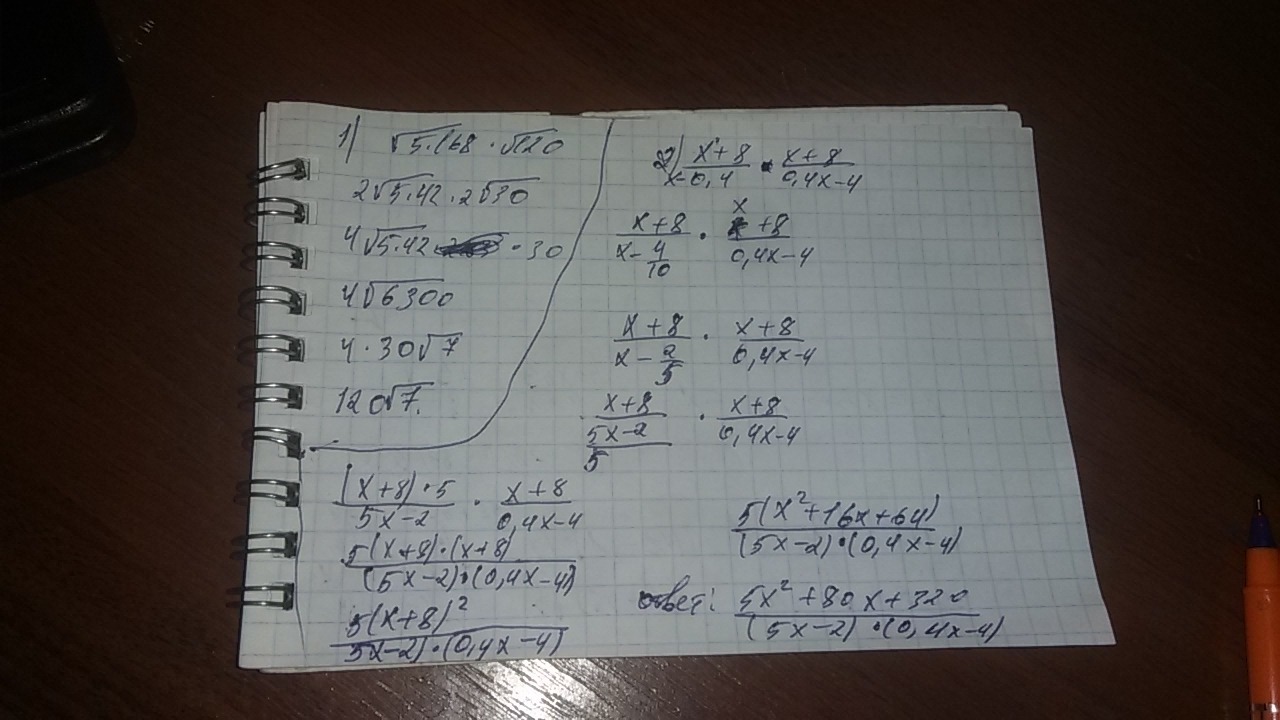 1) √5·168 · √120
2√5·42 · 2√30
4√5·42 · 30
4√6300
4·30√7
120√7.
2) (x+8)/(x-0,4) · (x+8)/(0,4x-4)
(x+8)/(x-4/10) · (x+8)/(0,4x-4)
(x+8)/(x-2/5) · (x+8)/(0,4x-4)
(x+8)/((5x-2)/5) · (x+8)/(0,4x-4)
((x+8)·5)/(5x-2) · (x+8)/(0,4x-4)
5(x+8)·(x+8)/(5x-2)·(0,4x-4)
5(x+8)²/5x-2)·(0,4x-4)
5(x²+16x+64)/(5x-2)·(0,4x-4)
ответ: 5x²+80x+320/(5x-2)·(0,4x-4)